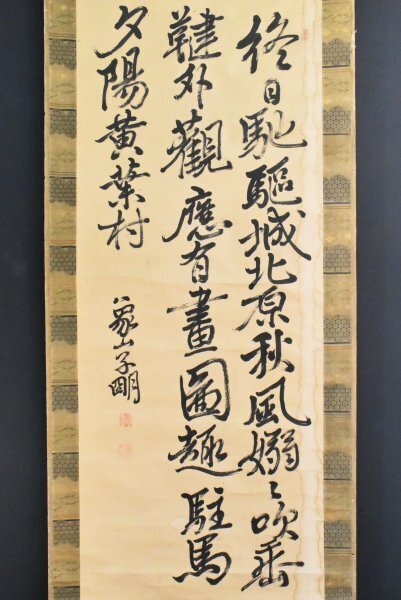 終日馳驅城北原秋風嫋々吹垂
鞬外觀應有畫圖趣駐馬
夕陽黄葉村
象山子明